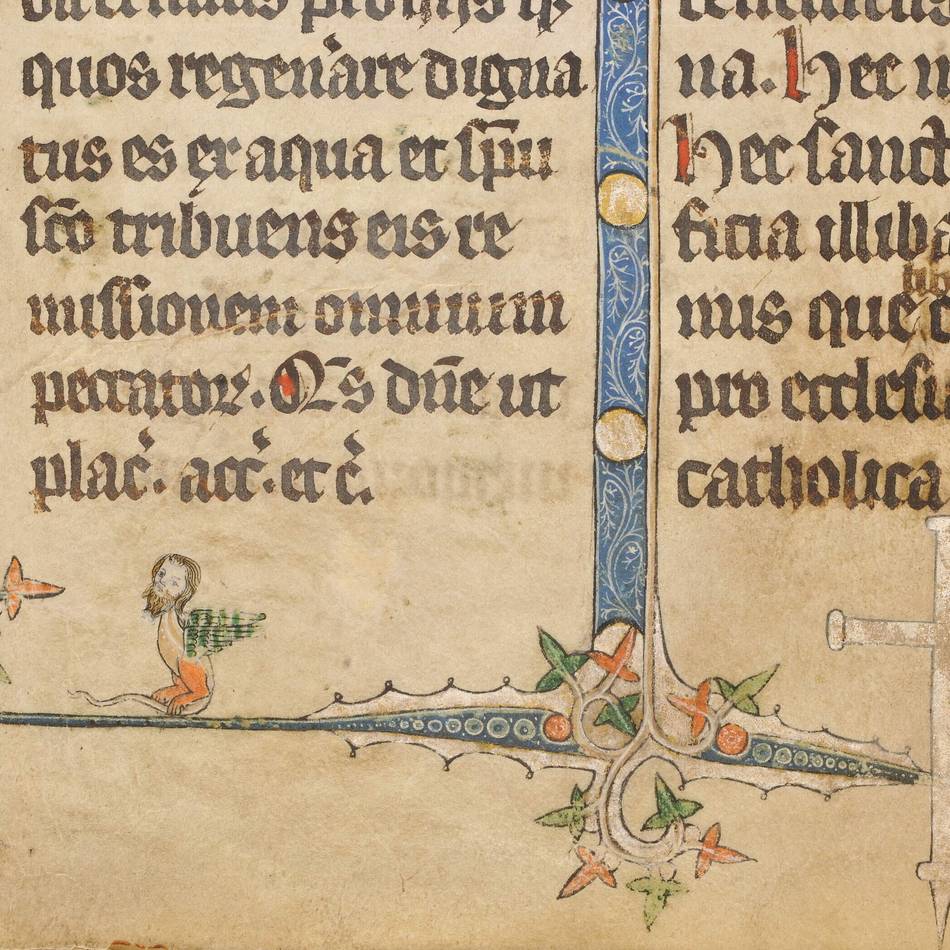 quos regenare digna
tus es ex aqua et sp̄u
sc̄o tribuens eis re
missionem omnium
peccator̄. Q̄s dn̄e ut
plac̄. acc̄. et c̄.
na. Hec
Hec sanct
ficia illiba
mus que
pro ecclesi
catholica